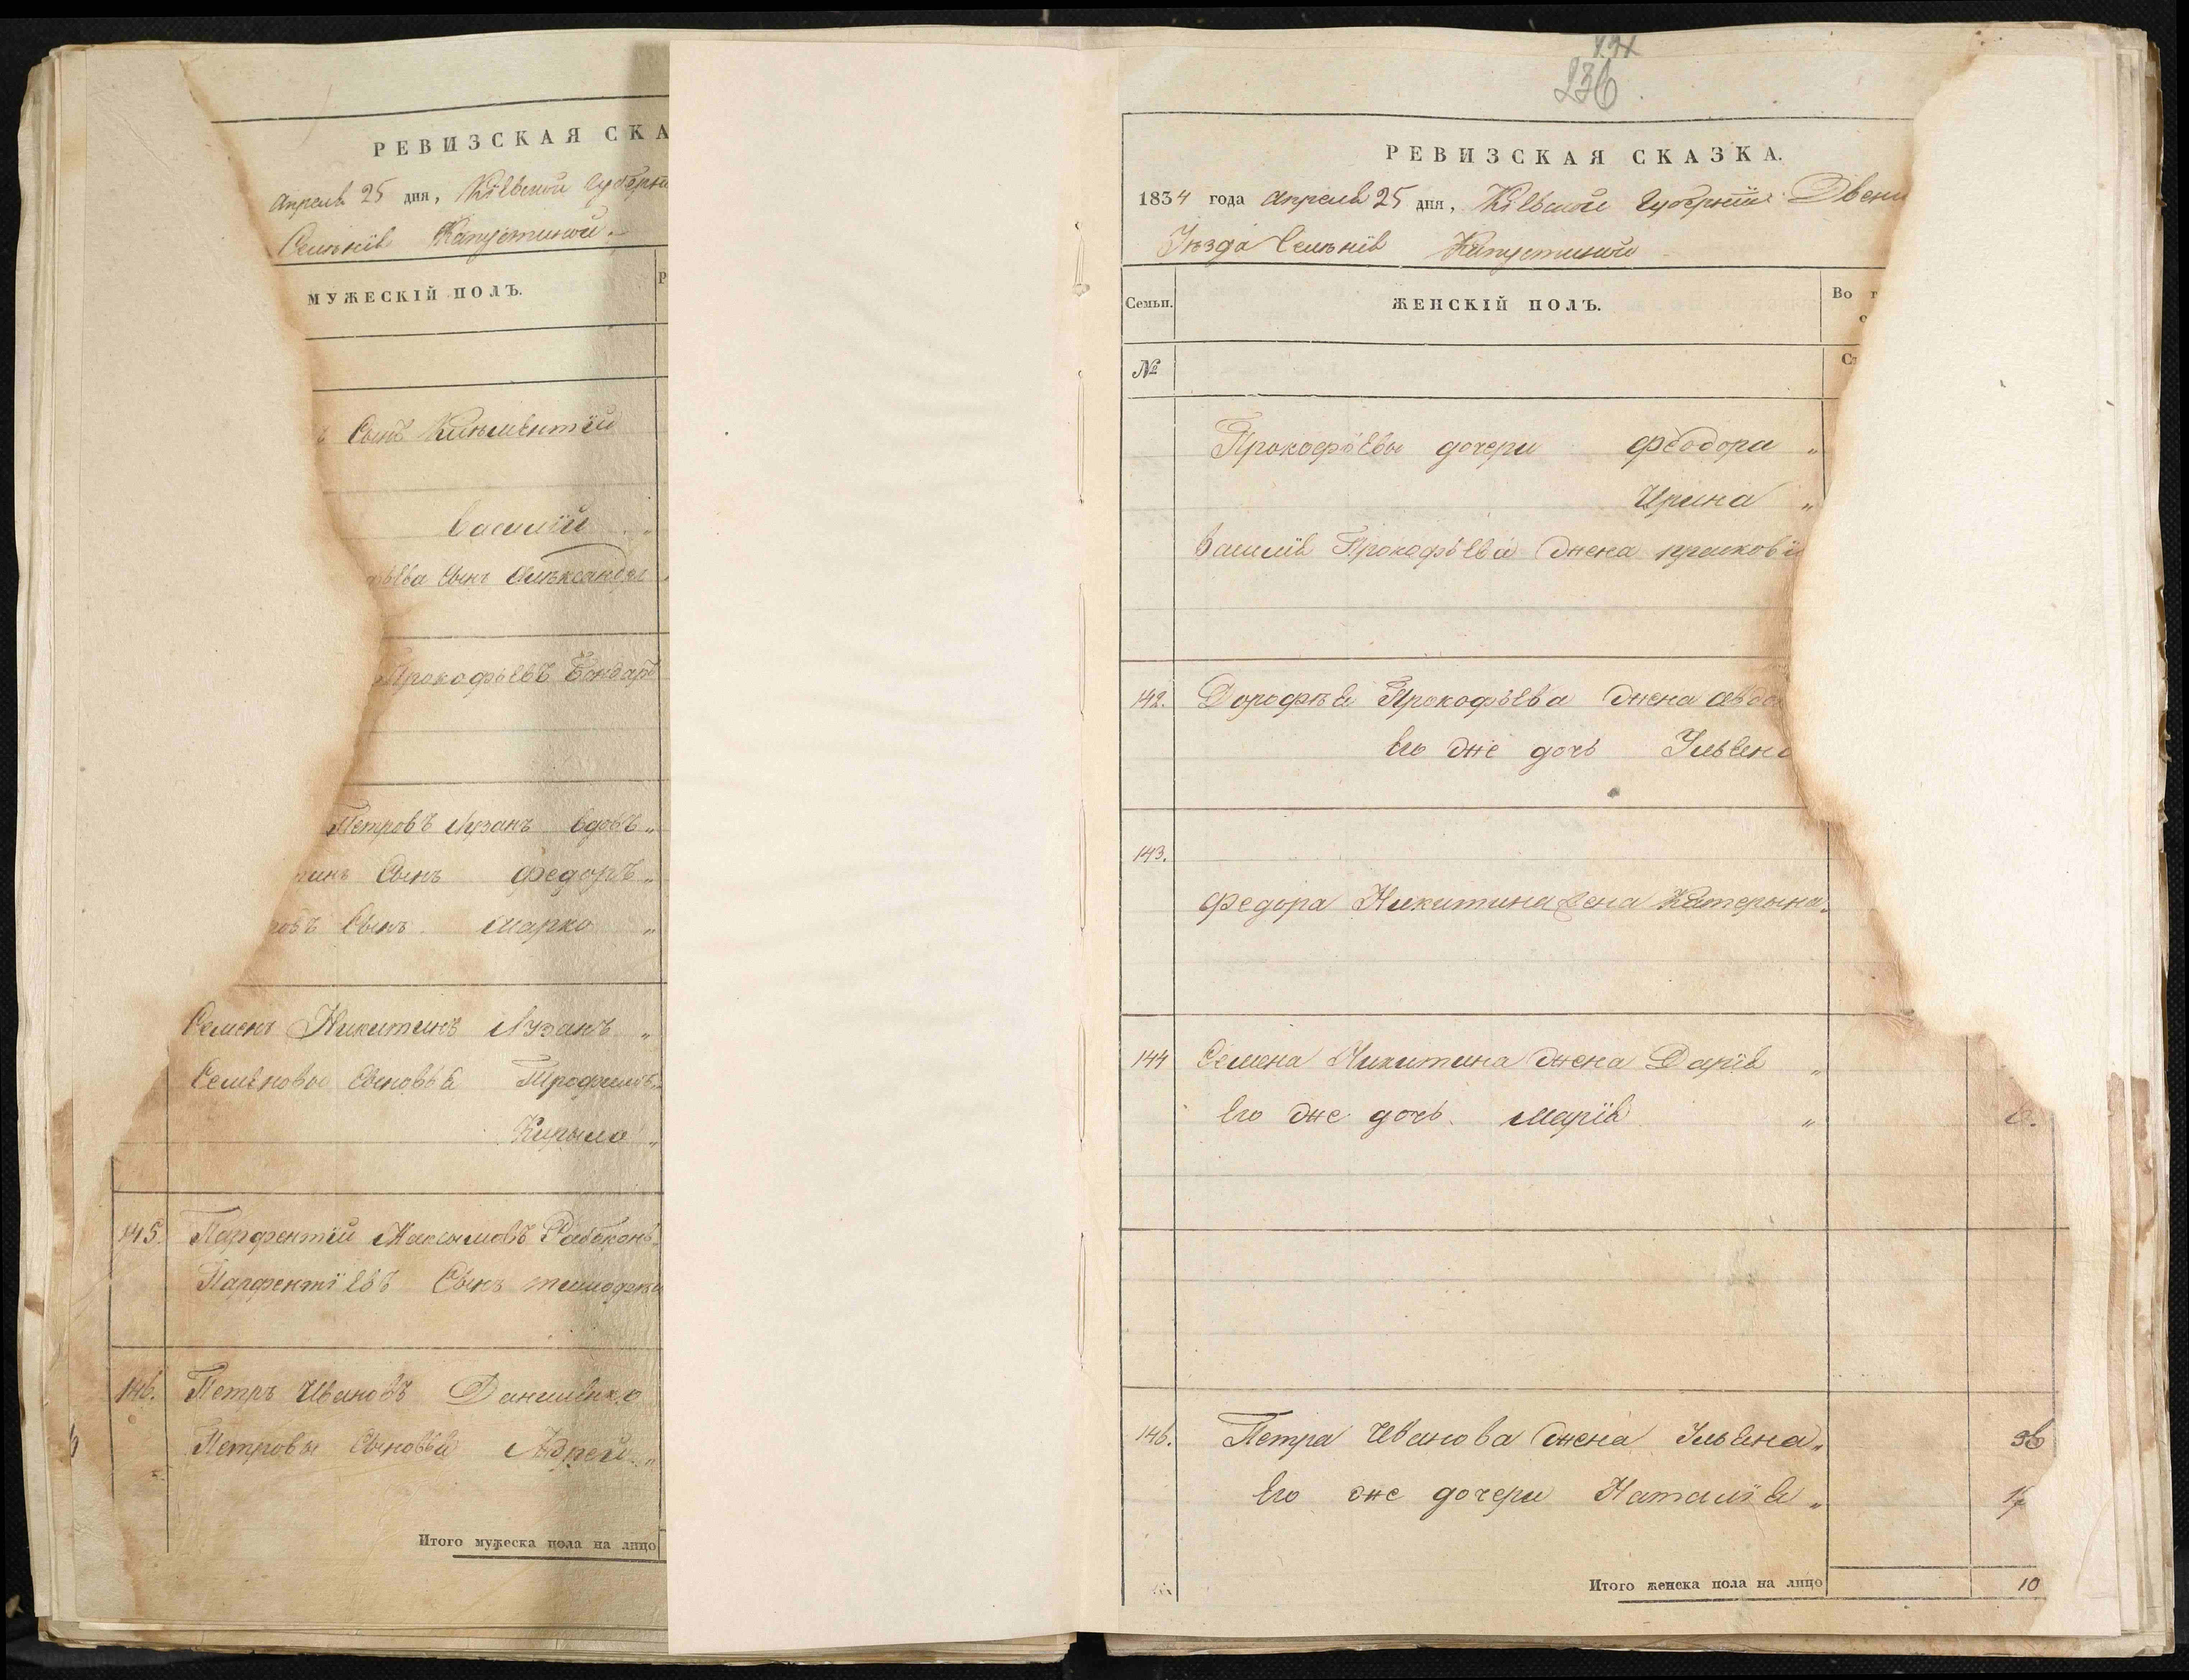 РЕВИЗСКАЯ СКА
Апреля 25 дня, Кіевской Губерні
Селенія Капустиной
МУЖЕСКІЙ ПОЛЪ.
Сынъ Климентій
Василій
фьева Сынъ Александръ
Прокофьевъ Бондарь
Петровъ Лузанъ вдовъ „
тинъ Сынъ Федоръ „
ровъ Сынъ Марко „
Семенъ Никитинъ Лузанъ „
Семеновы Сыновья Трофимъ „
Кирыло „
145. Парфентій Максымовъ Рабоконь
Парфентіевъ Сынъ тимофей
146. Петръ Ивановъ Даниленко
Петровы Сыновья Андрей „
Итого мужеска пола на лицо
236
РЕВИЗСКАЯ СКАЗКА.
1834 года Апреля 25 дня, Кіевской Губерніи Звени
Уезда Селенія Капустиной
Семьи. ЖЕНСКІЙ ПОЛЪ. Во
№
Прокофьевы дочери Феодора „
Ирина „
Василія Прокофьева жена прасковія
142. Дорофея Прокофьева жена Авдо
Его же дочь Ульяна
143.
Федора Никитина жена Катерына „
144 Семена Никитина жена Дарія „
Его же дочь Марія „ 6.
146. Петра Иванова жена Ульяна „ 36
Его же дочери Наталія „ 17
Итого женска пола на лицо 10